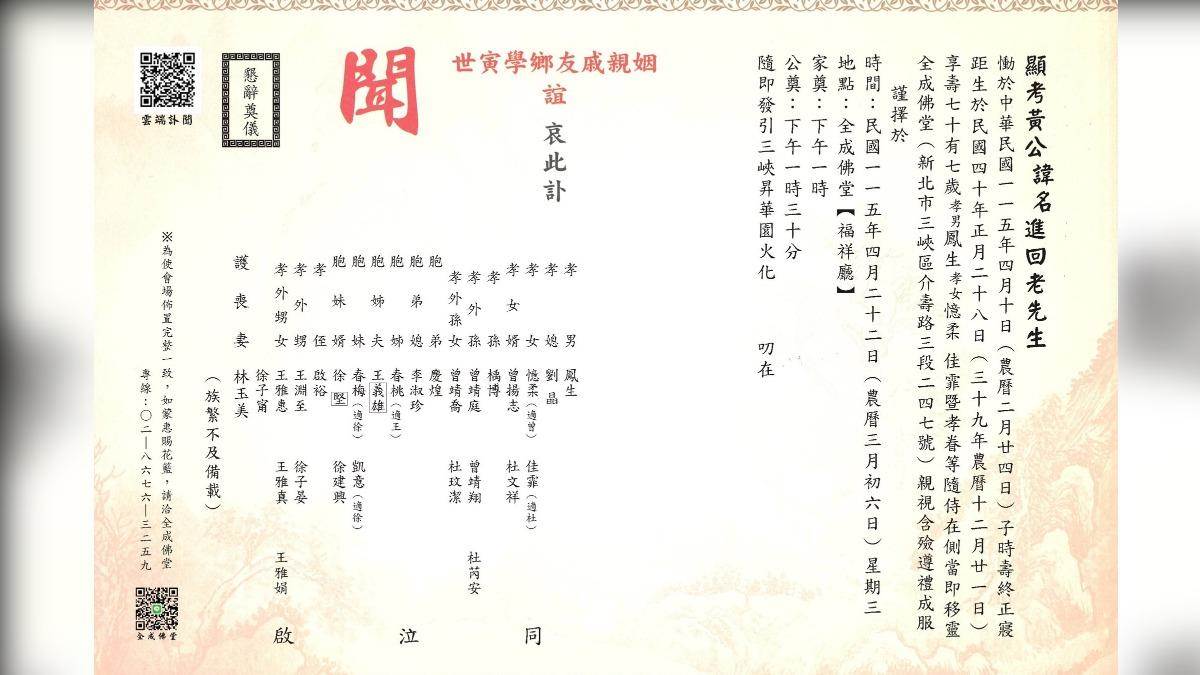 顯考黃公諱名進回老先生
慟於中華民國一一五年四月十日(農曆二月廿四日)子時壽終正寢
距生於民國四十年正月二十八日(三十九年農曆十二月廿一日)
享壽七十有七歲孝男鳳生孝女憶柔 佳霏暨孝眷等隨侍在側當即移靈
全成佛堂(新北市三峽區介壽路三段二四七號)親視含殮遵禮成服
謹擇於
時間:民國一一五年四月二十二日(農曆三月初六日)星期三
地點:全成佛堂【福祥廳】
家奠:下午一時
公奠:下午一時三十分
隨即發引三峽昇華園火化 叨在
世寅學鄉友戚親姻
誼 哀此訃
聞
孝男 鳳生
孝媳 劉晶
孝女 憶柔(適曾) 佳霏(適杜)
孝女婿 曾揚志 杜文祥
孝孫 楀博
孝外孫 曾靖庭 曾靖翔 杜芮安
孝外孫女 曾靖喬 杜玟潔
胞弟 慶煌
胞弟媳 李淑珍
胞姊 春桃(適王)
胞姊夫 王義雄
胞妹 春梅(適徐) 凱意(適徐)
胞妹婿 徐堅 徐建興
孝姪 啟裕
孝外甥 王淵至 徐子晏
孝外甥女 王雅惠 王雅真 王雅娟
徐子甯
護喪妻 林玉美
(族繁不及備載)
同泣啟
懇辭奠儀
雲端訃聞
※為使會場佈置完整一致,如蒙惠賜花籃,請洽全成佛堂
專線:〇二—八六七六—三二五九
全成佛堂